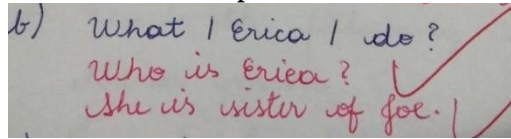 b) What / Erica / do?
Who is Erica?
She is sister of Joe.